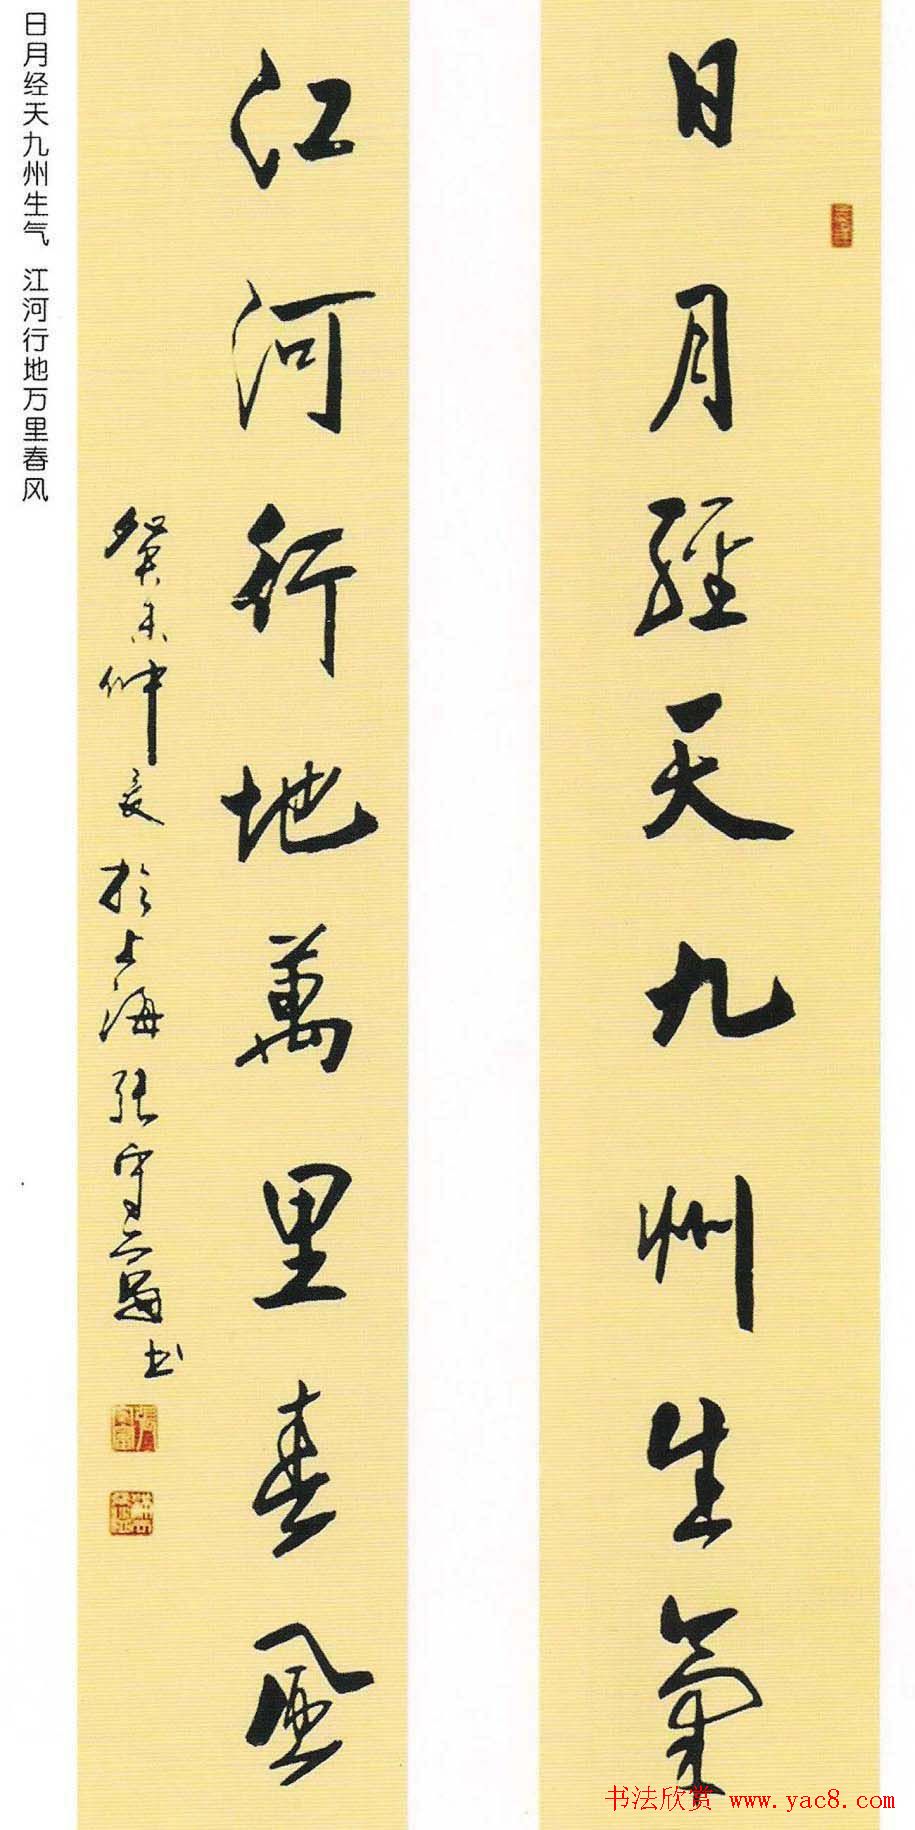 日月經天九州生氣
江河行地萬里春風
癸未仲夏於上海張守富书
日月经天九州生气 江河行地万里春风
书法欣赏 www.yac8.com